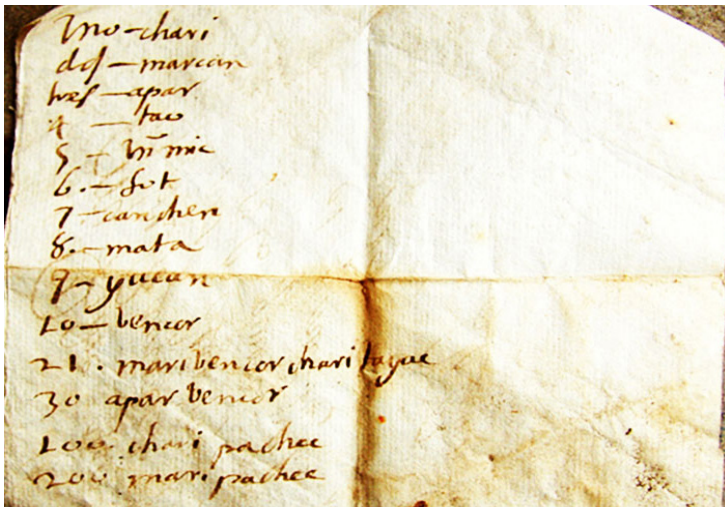 uno - chari
dos - marian
tres - apar
4 - tao
5 - himic
6. - sut
7 - canchen
8. - mata
9 - yucan
10 - bencor
21. maribencor chari tayac
30 apar bencor
100. chari pachac
200 mari pachac